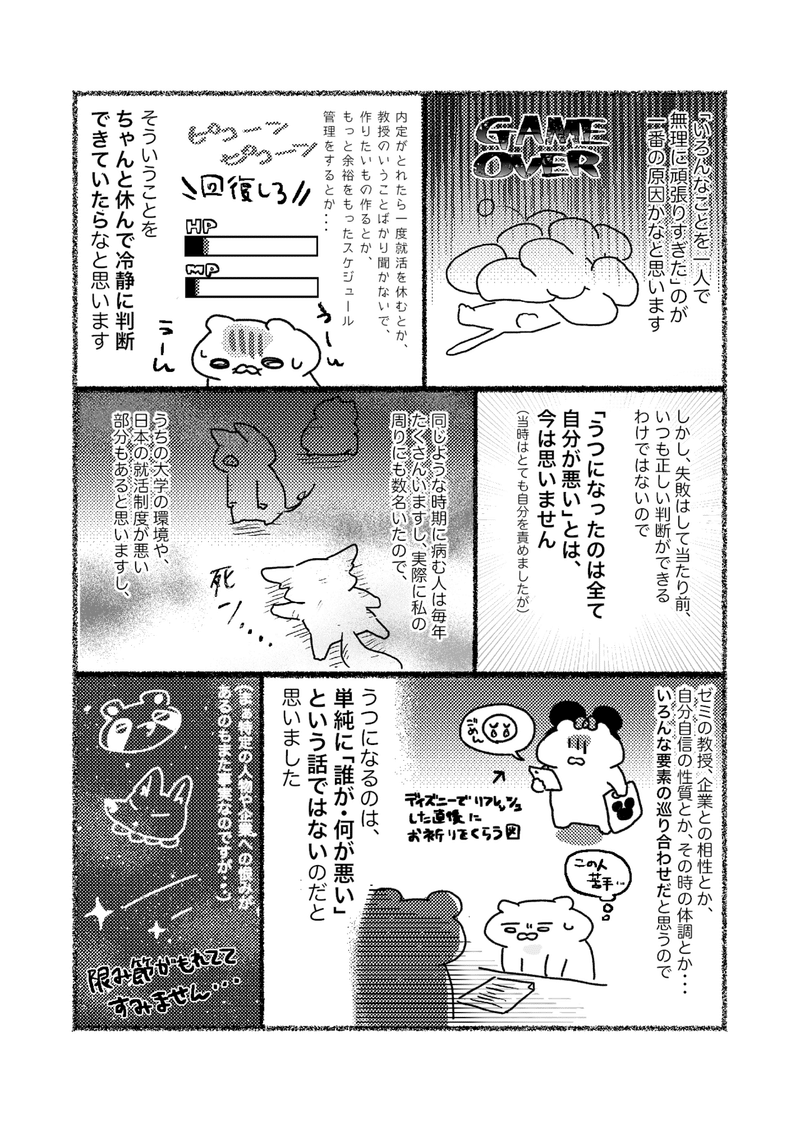 「いろんなことを一人で
無理に頑張りすぎた」のが
一番の原因かなと思います
GAME
OVER
内定がとれたら一度就活を休むとか、
教授のいうことばかり聞かないで、
作りたいもの作るとか、
もっと余裕をもったスケジュール
管理をするとか・・
ピコーン
ピコーン
回復しろ
HP
MP
うーん
うーん
そういうことを
ちゃんと休んで冷静に判断
できていたらなと思います
しかし、失敗はして当たり前、
いつも正しい判断ができる
わけではないので
「うつになったのは全て
自分が悪い」とは、
今は思いません
(当時はとても自分を責めましたが)
同じような時期に病む人は毎年
たくさんいますし、実際に私の
周りにも数名いたので、
死
ーン....
うちの大学の環境や、
日本の就活制度が悪い
部分もあると思いますし、
ゼミの教授、企業との相性とか、
自分自信の性質とか、その時の体調とか・・・
いろんな要素の巡り合わせだと思うので
ごめん
ディズニーでリフレッシュ
した直後に
お祈りをくらう図
この人
苦手…
うつになるのは、
単純に「誰が・何が悪い」
という話ではないのだと
思いました
(まぁ特定の人物や企業への恨みが
あるのもまた事実なのですが・・)
限み節がもれてて
すみません・・・